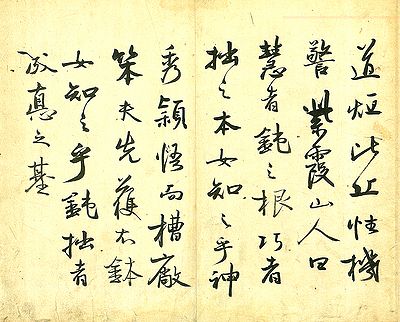 道恒此止性機
警紫霞山人曰
慧者鈍之根巧者
拙之本女知之乎神
秀穎悟而槽廠
笨夫先獲衣鉢
女知之乎鈍拙者
成真之基